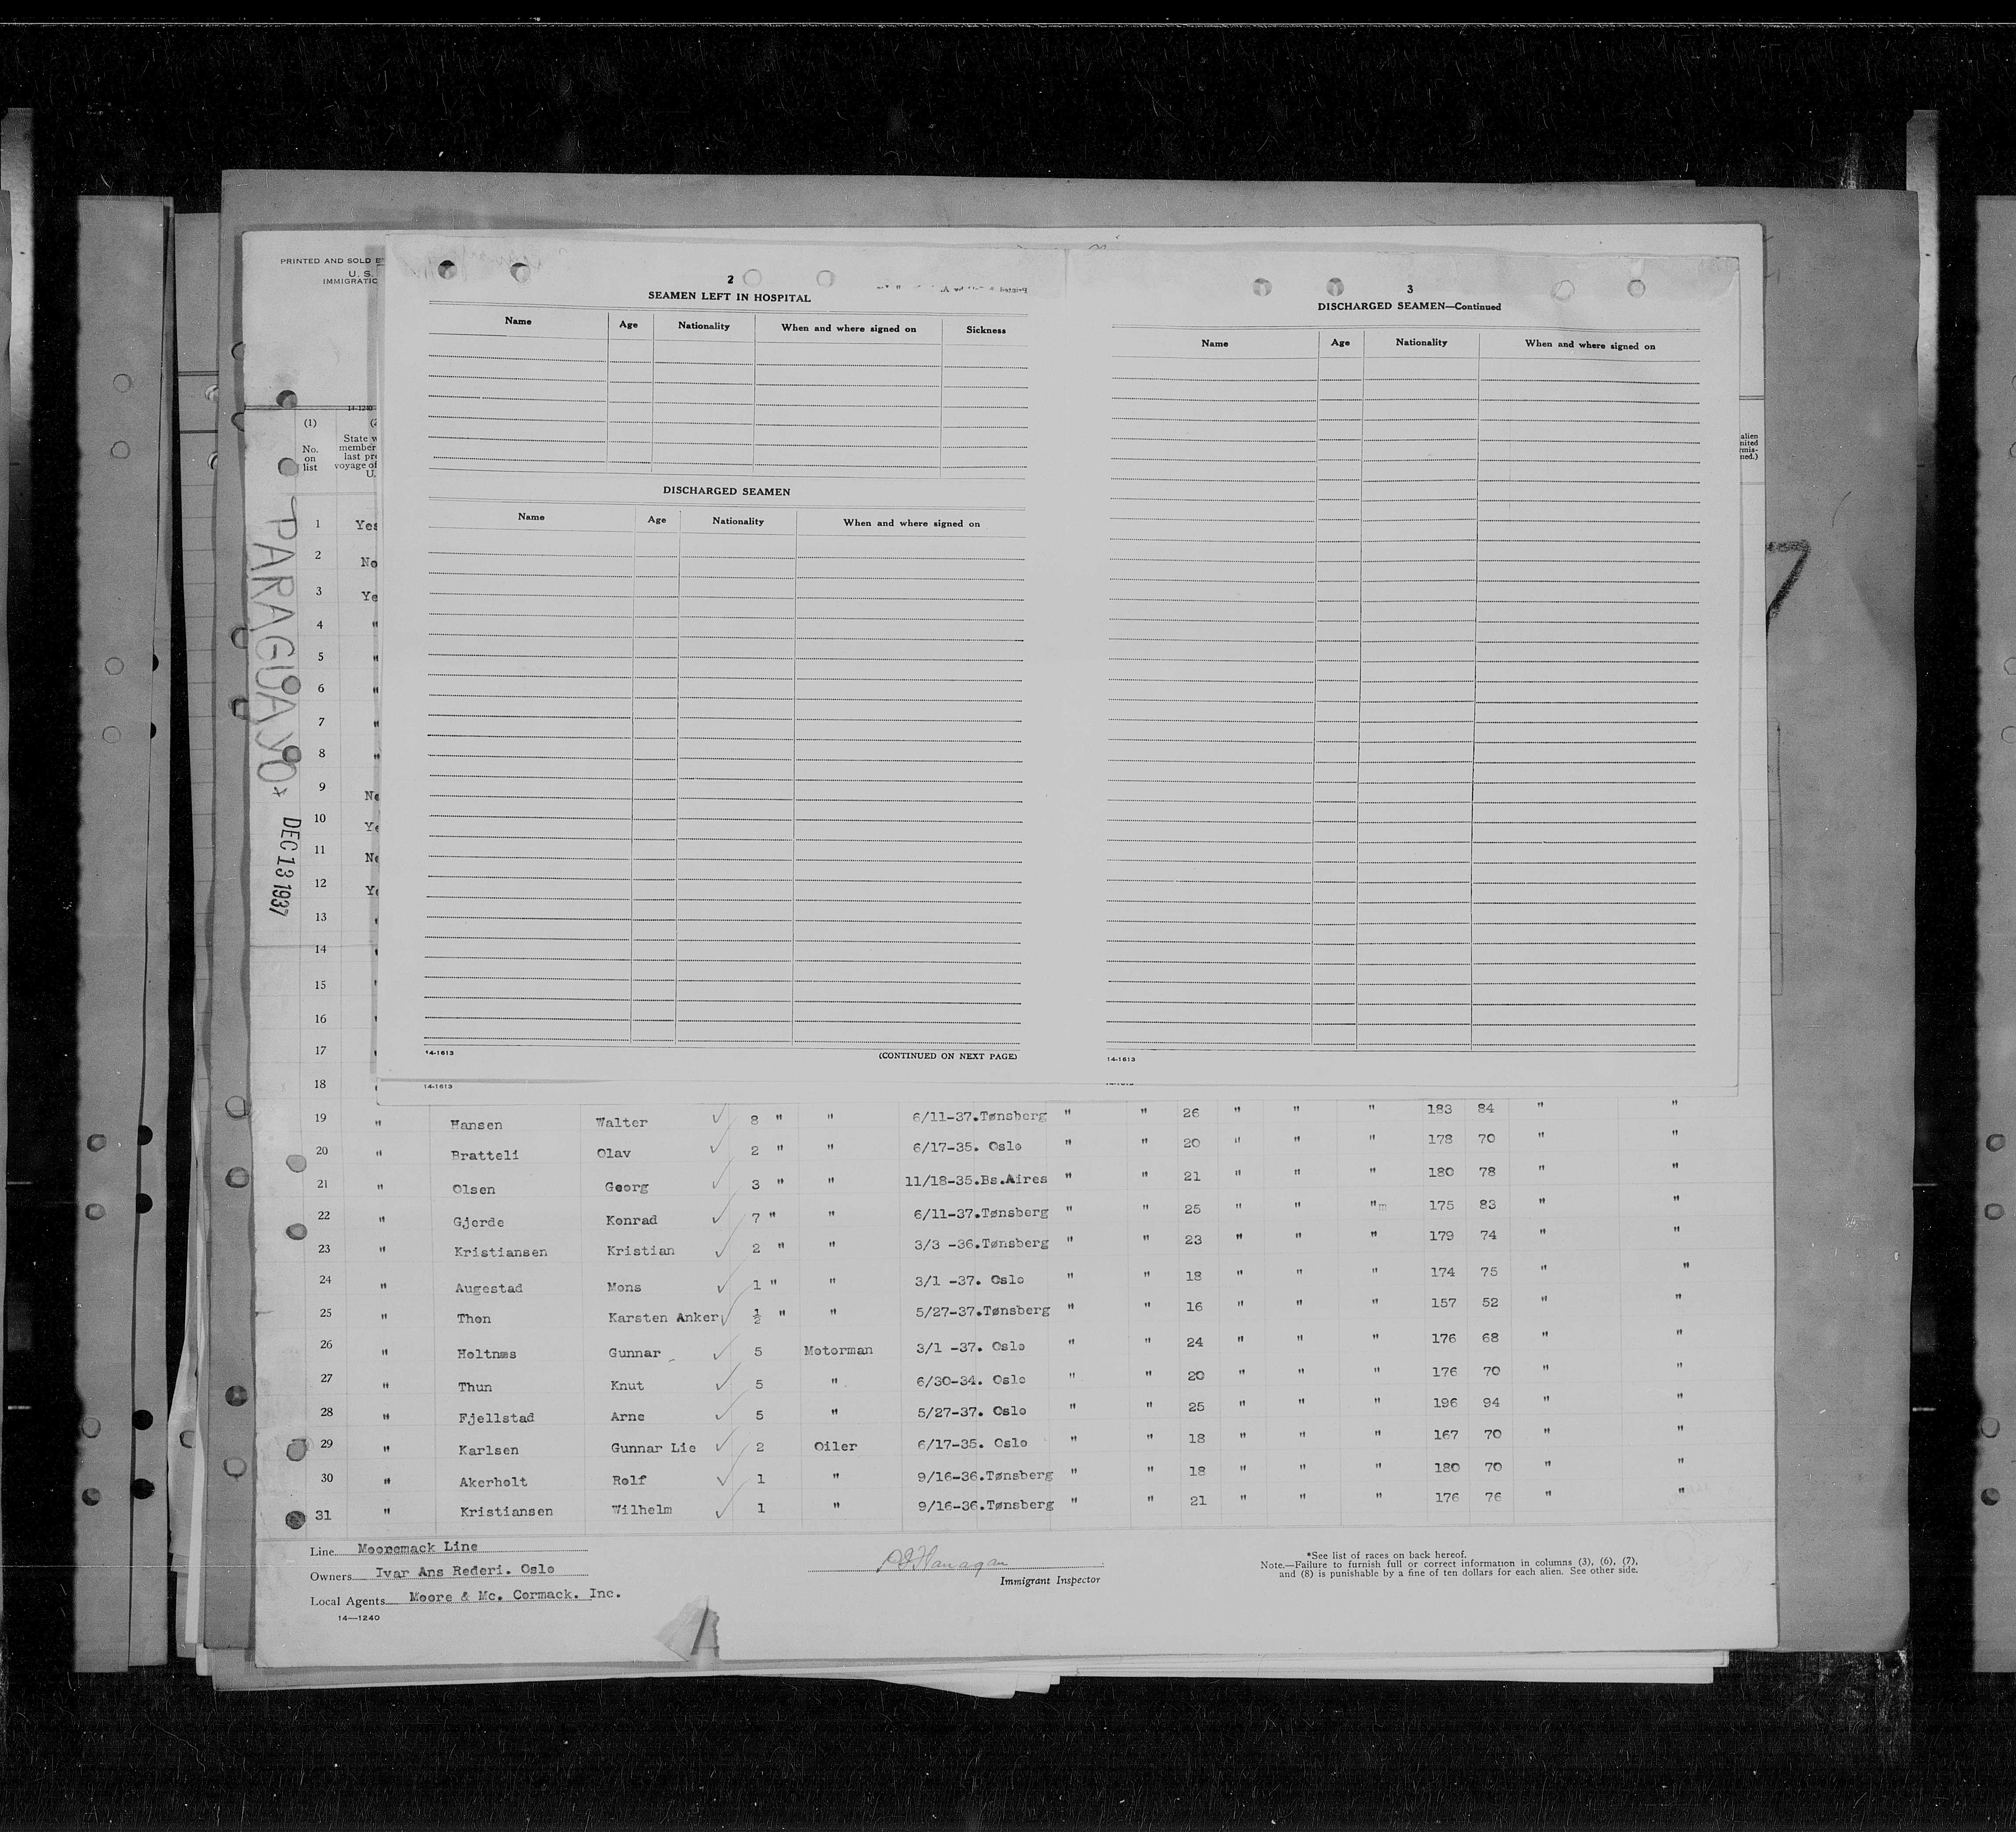 PRINTED AND SOLD B
U. S.
IMMIGRATIO
14-1240
(1)
No. on list
State w
member
last pre
voyage of
U.
PARAGUAYO
DEC 13 1937
2
SEAMEN LEFT IN HOSPITAL
Name Age Nationality When and where signed on Sickness
DISCHARGED SEAMEN
Name Age Nationality When and where signed on
14-1613 (CONTINUED ON NEXT PAGE)
14-1613
3
DISCHARGED SEAMEN—Continued
Name Age Nationality When and where signed on
14-1613
alien
nited
rmis-
ned.)
7
1 Yes
2 No
3 Ye
4 "
5 "
6 "
7 "
8 "
9 No
10 Ye
11 No
12 Ye
13
14
15
16
17
18
19 " Hansen Walter 8 " " 6/11-37.Tønsberg " " 26 " " " 183 84 " "
20 " Bratteli Olav 2 " " 6/17-35. Oslo " " 20 " " " 178 70 " "
21 " Olsen Georg 3 " " 11/18-35.Bs.Aires " " 21 " " " 180 78 " "
22 " Gjerde Konrad 7 " " 6/11-37.Tønsberg " " 25 " " "m 175 83 " "
23 " Kristiansen Kristian 2 " " 3/3 -36.Tønsberg " " 23 " " " 179 74 " "
24 " Augestad Mons 1 " " 3/1 -37. Oslo " " 18 " " " 174 75 " "
25 " Thon Karsten Anker ½ " " 5/27-37.Tønsberg " " 16 " " " 157 52 " "
26 " Holtnæs Gunnar 5 Motorman 3/1 -37. Oslo " " 24 " " " 176 68 " "
27 " Thun Knut 5 " 6/30-34. Oslo " " 20 " " " 176 70 " "
28 " Fjellstad Arne 5 " 5/27-37. Oslo " " 25 " " " 196 94 " "
29 " Karlsen Gunnar Lie 2 Oiler 6/17-35. Oslo " " 18 " " " 167 70 " "
30 " Akerholt Rolf 1 " 9/16-36.Tønsberg " " 18 " " " 180 70 " "
31 " Kristiansen Wilhelm 1 " 9/16-36.Tønsberg " " 21 " " " 176 76 " "
Line Mooremack Line
Owners Ivar Ans Rederi. Oslo
Local Agents Moore & Mc. Cormack. Inc.
14—1240
Flanagan
Immigrant Inspector
*See list of races on back hereof.
Note.—Failure to furnish full or correct information in columns (3), (6), (7),
and (8) is punishable by a fine of ten dollars for each alien. See other side.